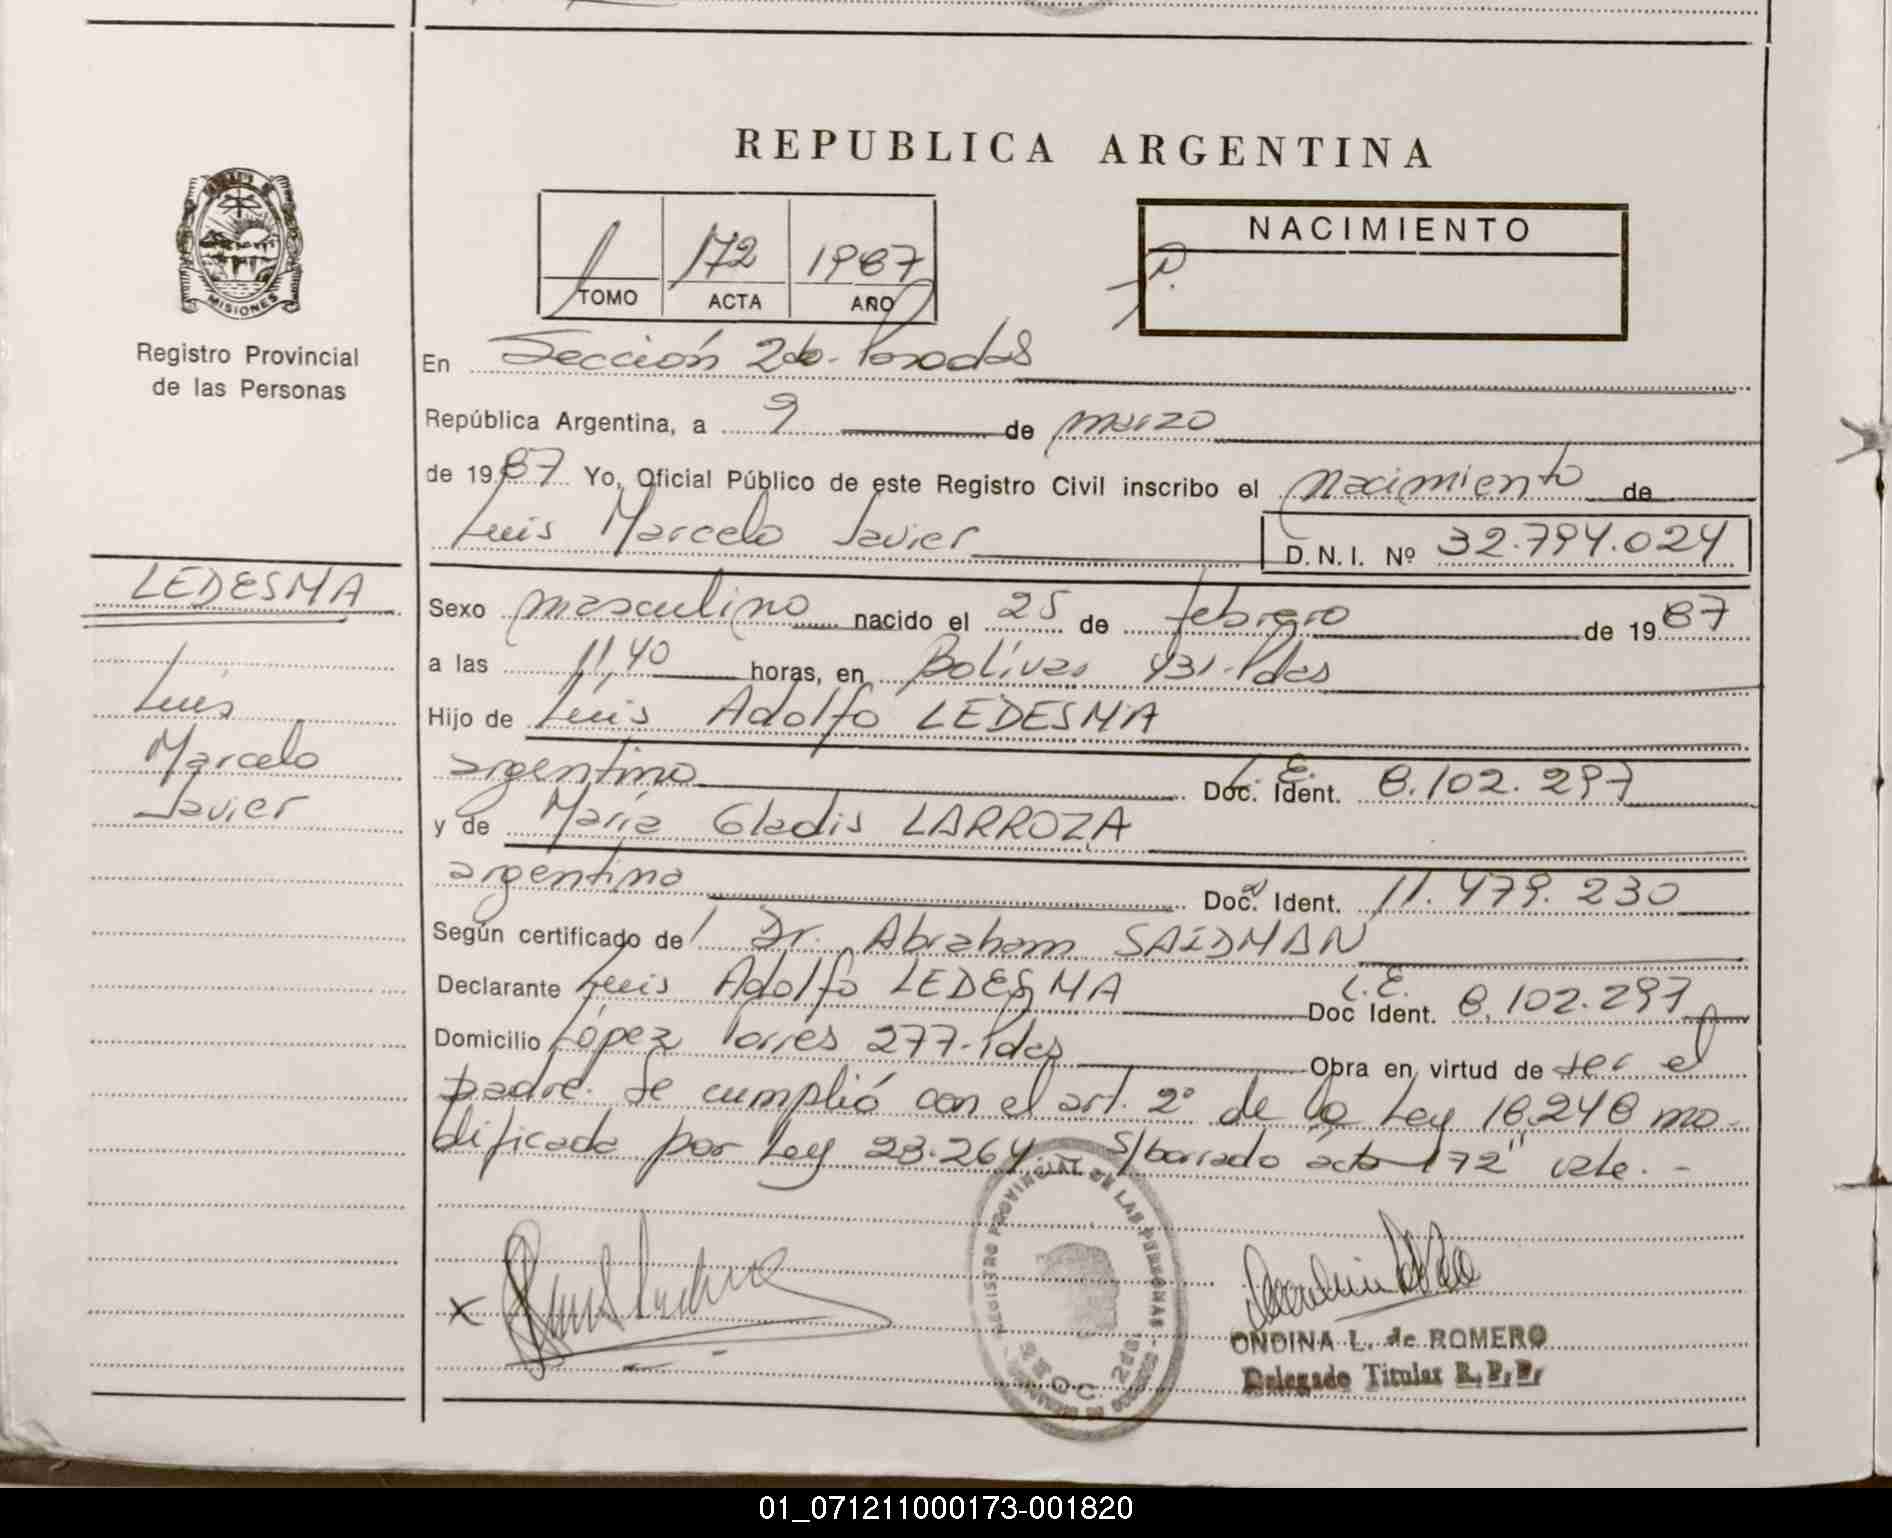 REPUBLICA ARGENTINA
MISIONES
Registro Provincial
de las Personas
1 172 1987
TOMO ACTA AÑO
NACIMIENTO
En Sección 2da- Posadas
República Argentina, a 9 de marzo
de 1987 Yo, Oficial Público de este Registro Civil inscribo el nacimiento de
Luis Marcelo Javier D.N.I. Nº 32.794.024
LEDESMA
Luis
Marcelo
Javier
Sexo masculino nacido el 25 de febrero de 1987
a las 11,40 horas, en Bolívar 431-Pdas
Hijo de Luis Adolfo LEDESMA
argentino L.E. Doc. Ident. 8.102.297
y de María Gladis LARROZA
argentina Doc. Ident. 11.479.230
Según certificado del Dr. Abraham SAIDMAN
Declarante Luis Adolfo LEDESMA L.E. Doc Ident. 8.102.297
Domicilio López Torres 277-Pdas Obra en virtud de ser el
padre. Se cumplió con el art. 2º de la Ley 18.248 mo-
dificada por Ley 23.264 S/borrado "acta 172" vale.-
REGISTRO PROVINCIAL DE LAS PERSONAS
SECC. 2da.
X
ONDINA L. de ROMERO
Delegado Titular R.P.P.
01_071211000173-001820